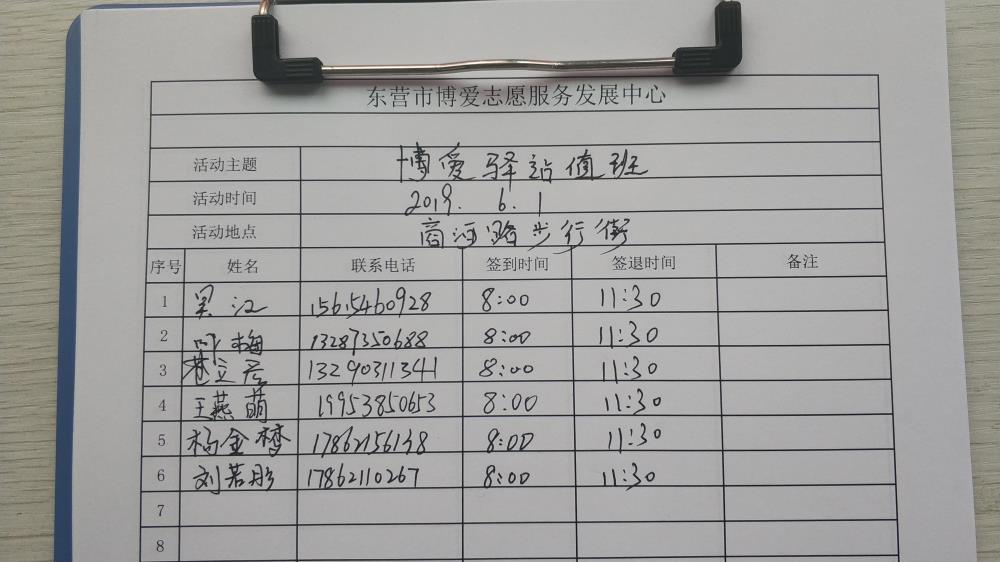 东营市博爱志愿服务发展中心
活动主题 博爱驿站值班
活动时间 2019. 6. 1
活动地点 商河路步行街
序号 姓名 联系电话 签到时间 签退时间 备注
1 吴江 15615460928 8:00 11:30
2 叶梅 13287350688 8:00 11:30
3 13290311341 8:00 11:30
4 王燕萌 19953850653 8:00 11:30
5 杨金梦 17862156138 8:00 11:30
6 刘若彤 17862110267 8:00 11:30
7
8